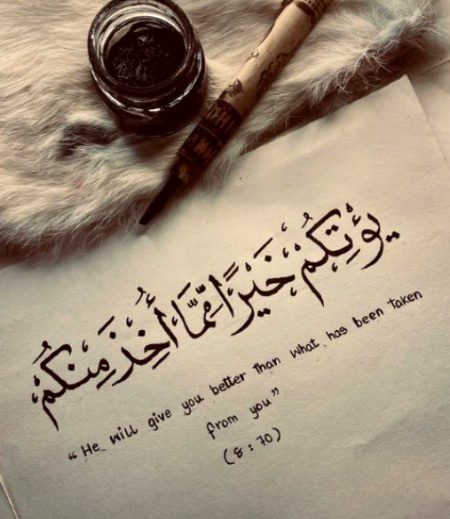 يُؤْتِكُمْ خَيْرًا مِّمَّا أُخِذَ مِنكُمْ
“He will give you better than what has been taken
from you”
(8:70)